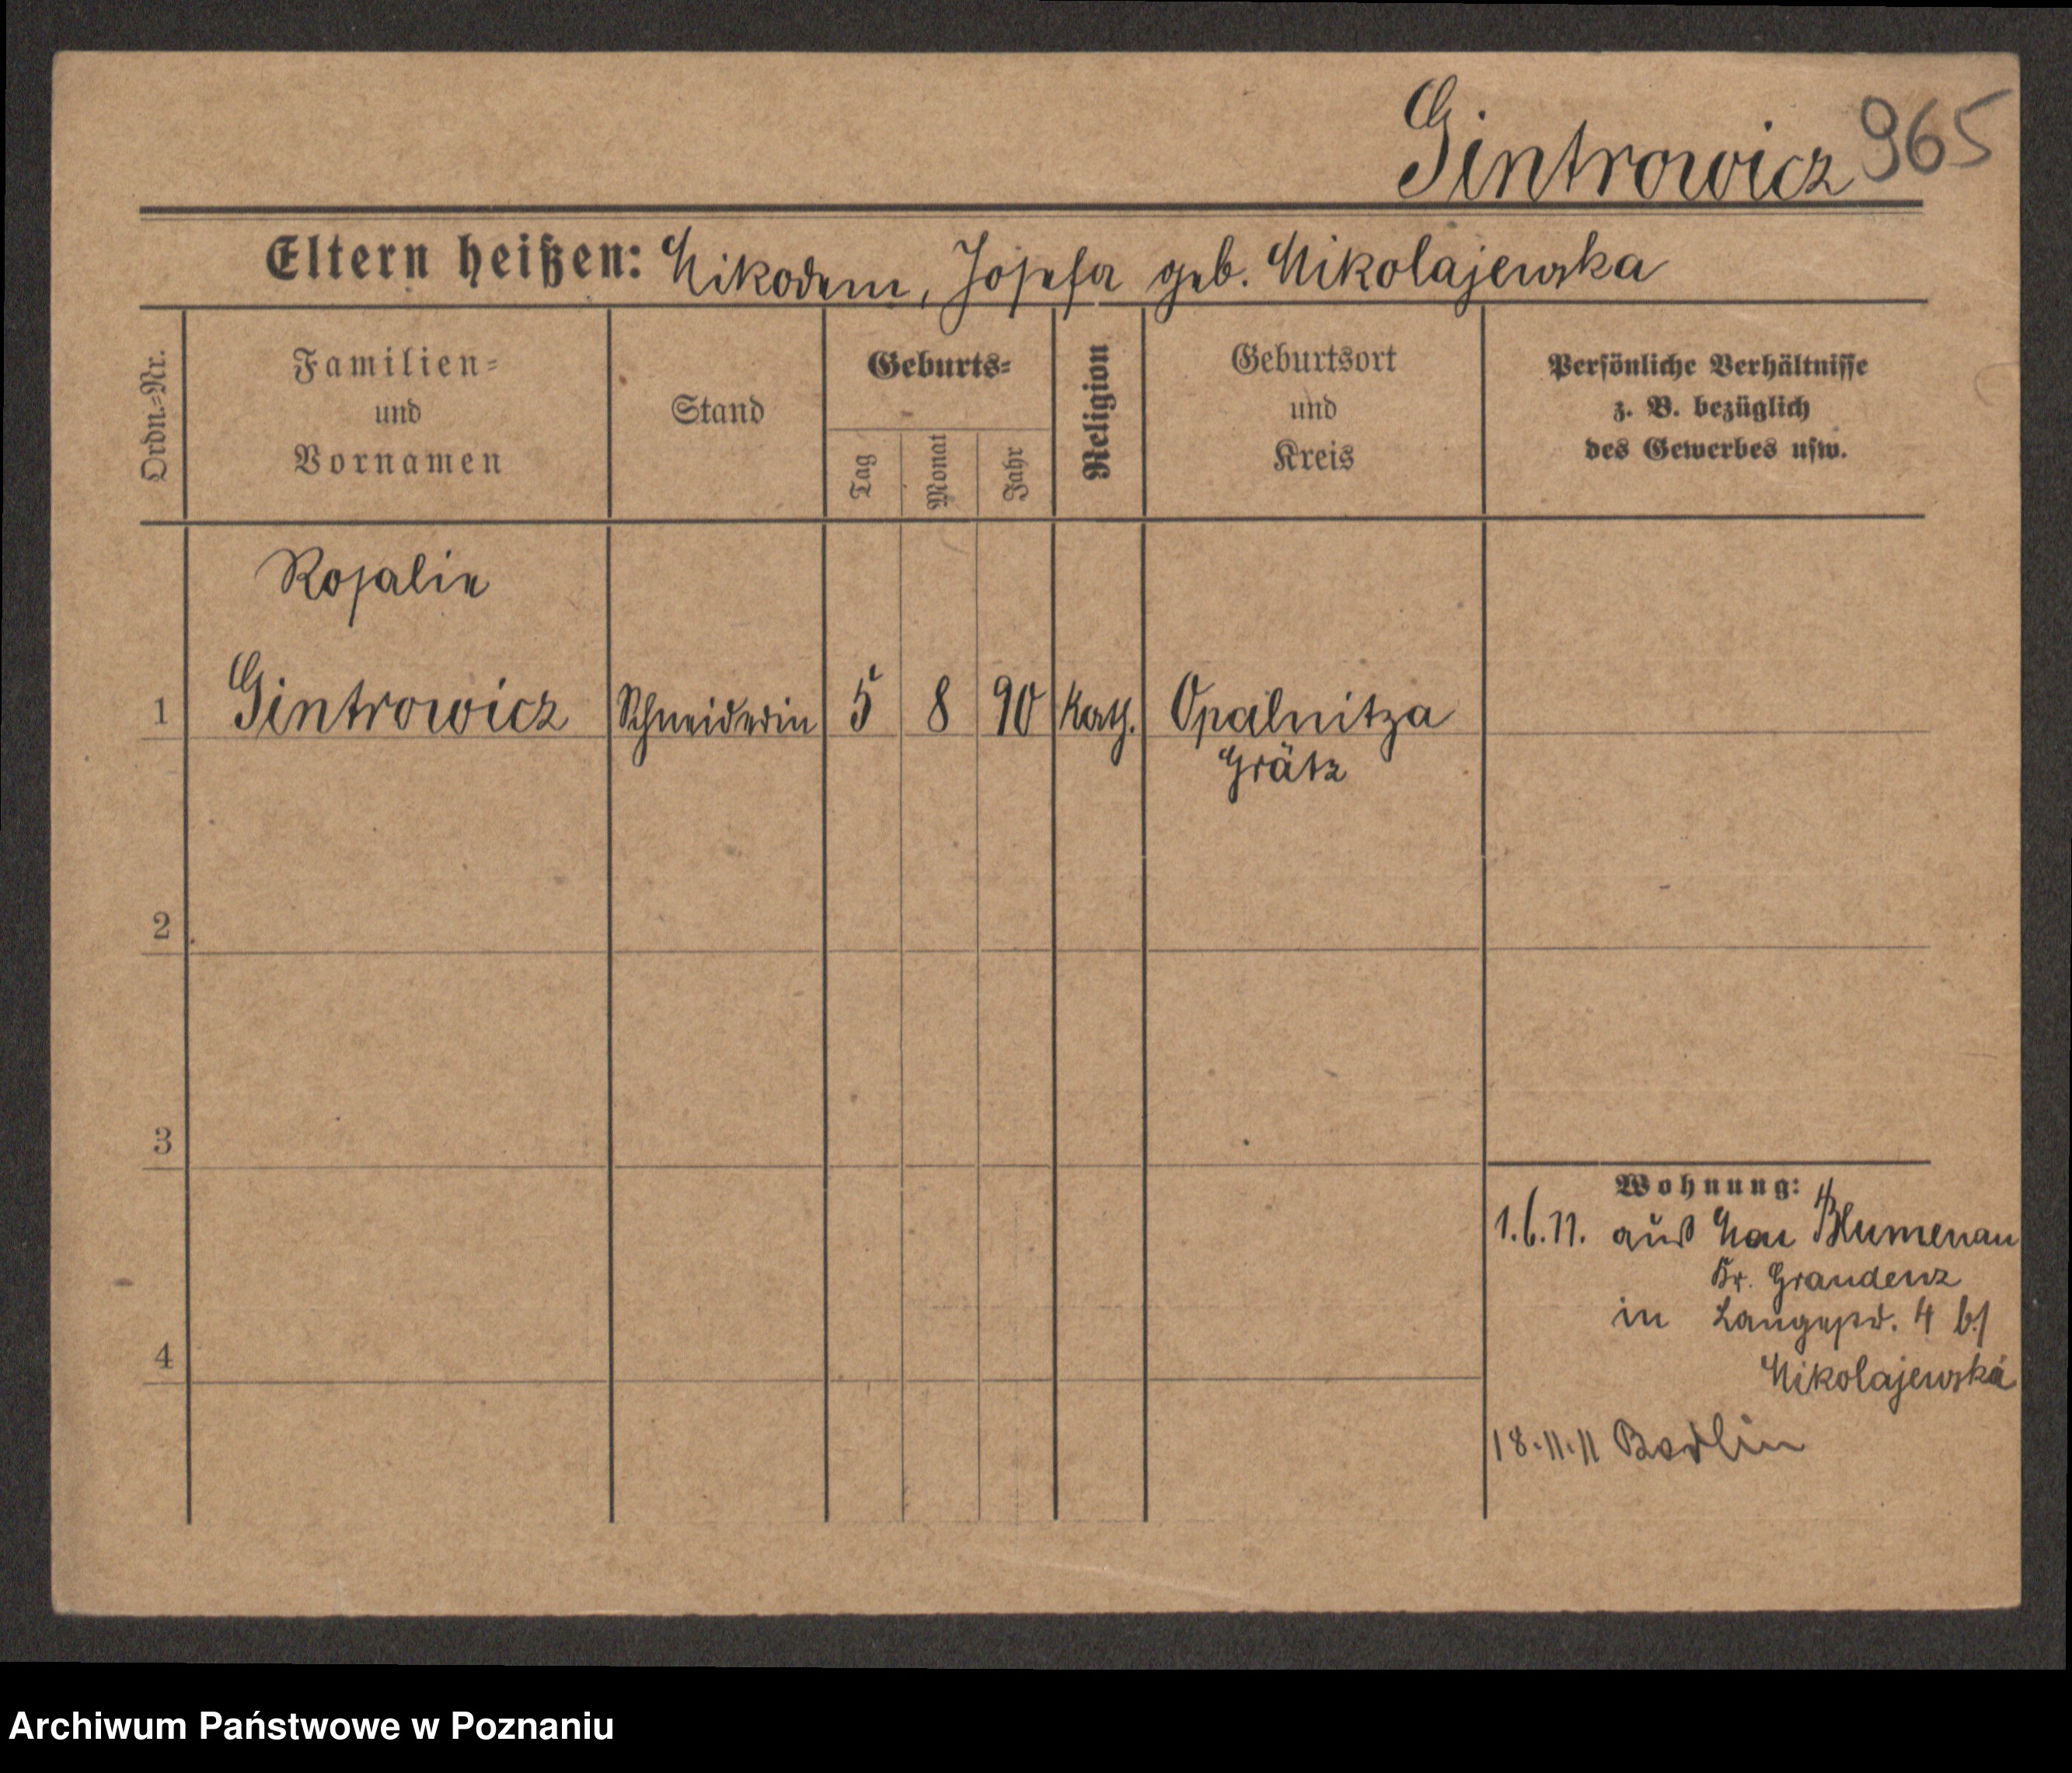 Gintrowicz 965
Eltern heißen: Nikodem, Josefa geb. Nikolajewska
Ordn.-Nr.
Familien-
und
Vornamen
Stand
Geburts-
Tag
Monat
Jahr
Religion
Geburtsort
und
Kreis
Persönliche Verhältnisse
z. B. bezüglich
des Gewerbes usw.
Rosalie
1 Gintrowicz Schneiderin 5 8 90 kath. Opalnitza
Grätz
2
3
4
Wohnung:
1.6.11. aus Blumenau
Kr. Graudenz
in Langestr. 4 b/
Nikolajewska
18.11.11 Berlin
Archiwum Państwowe w Poznaniu